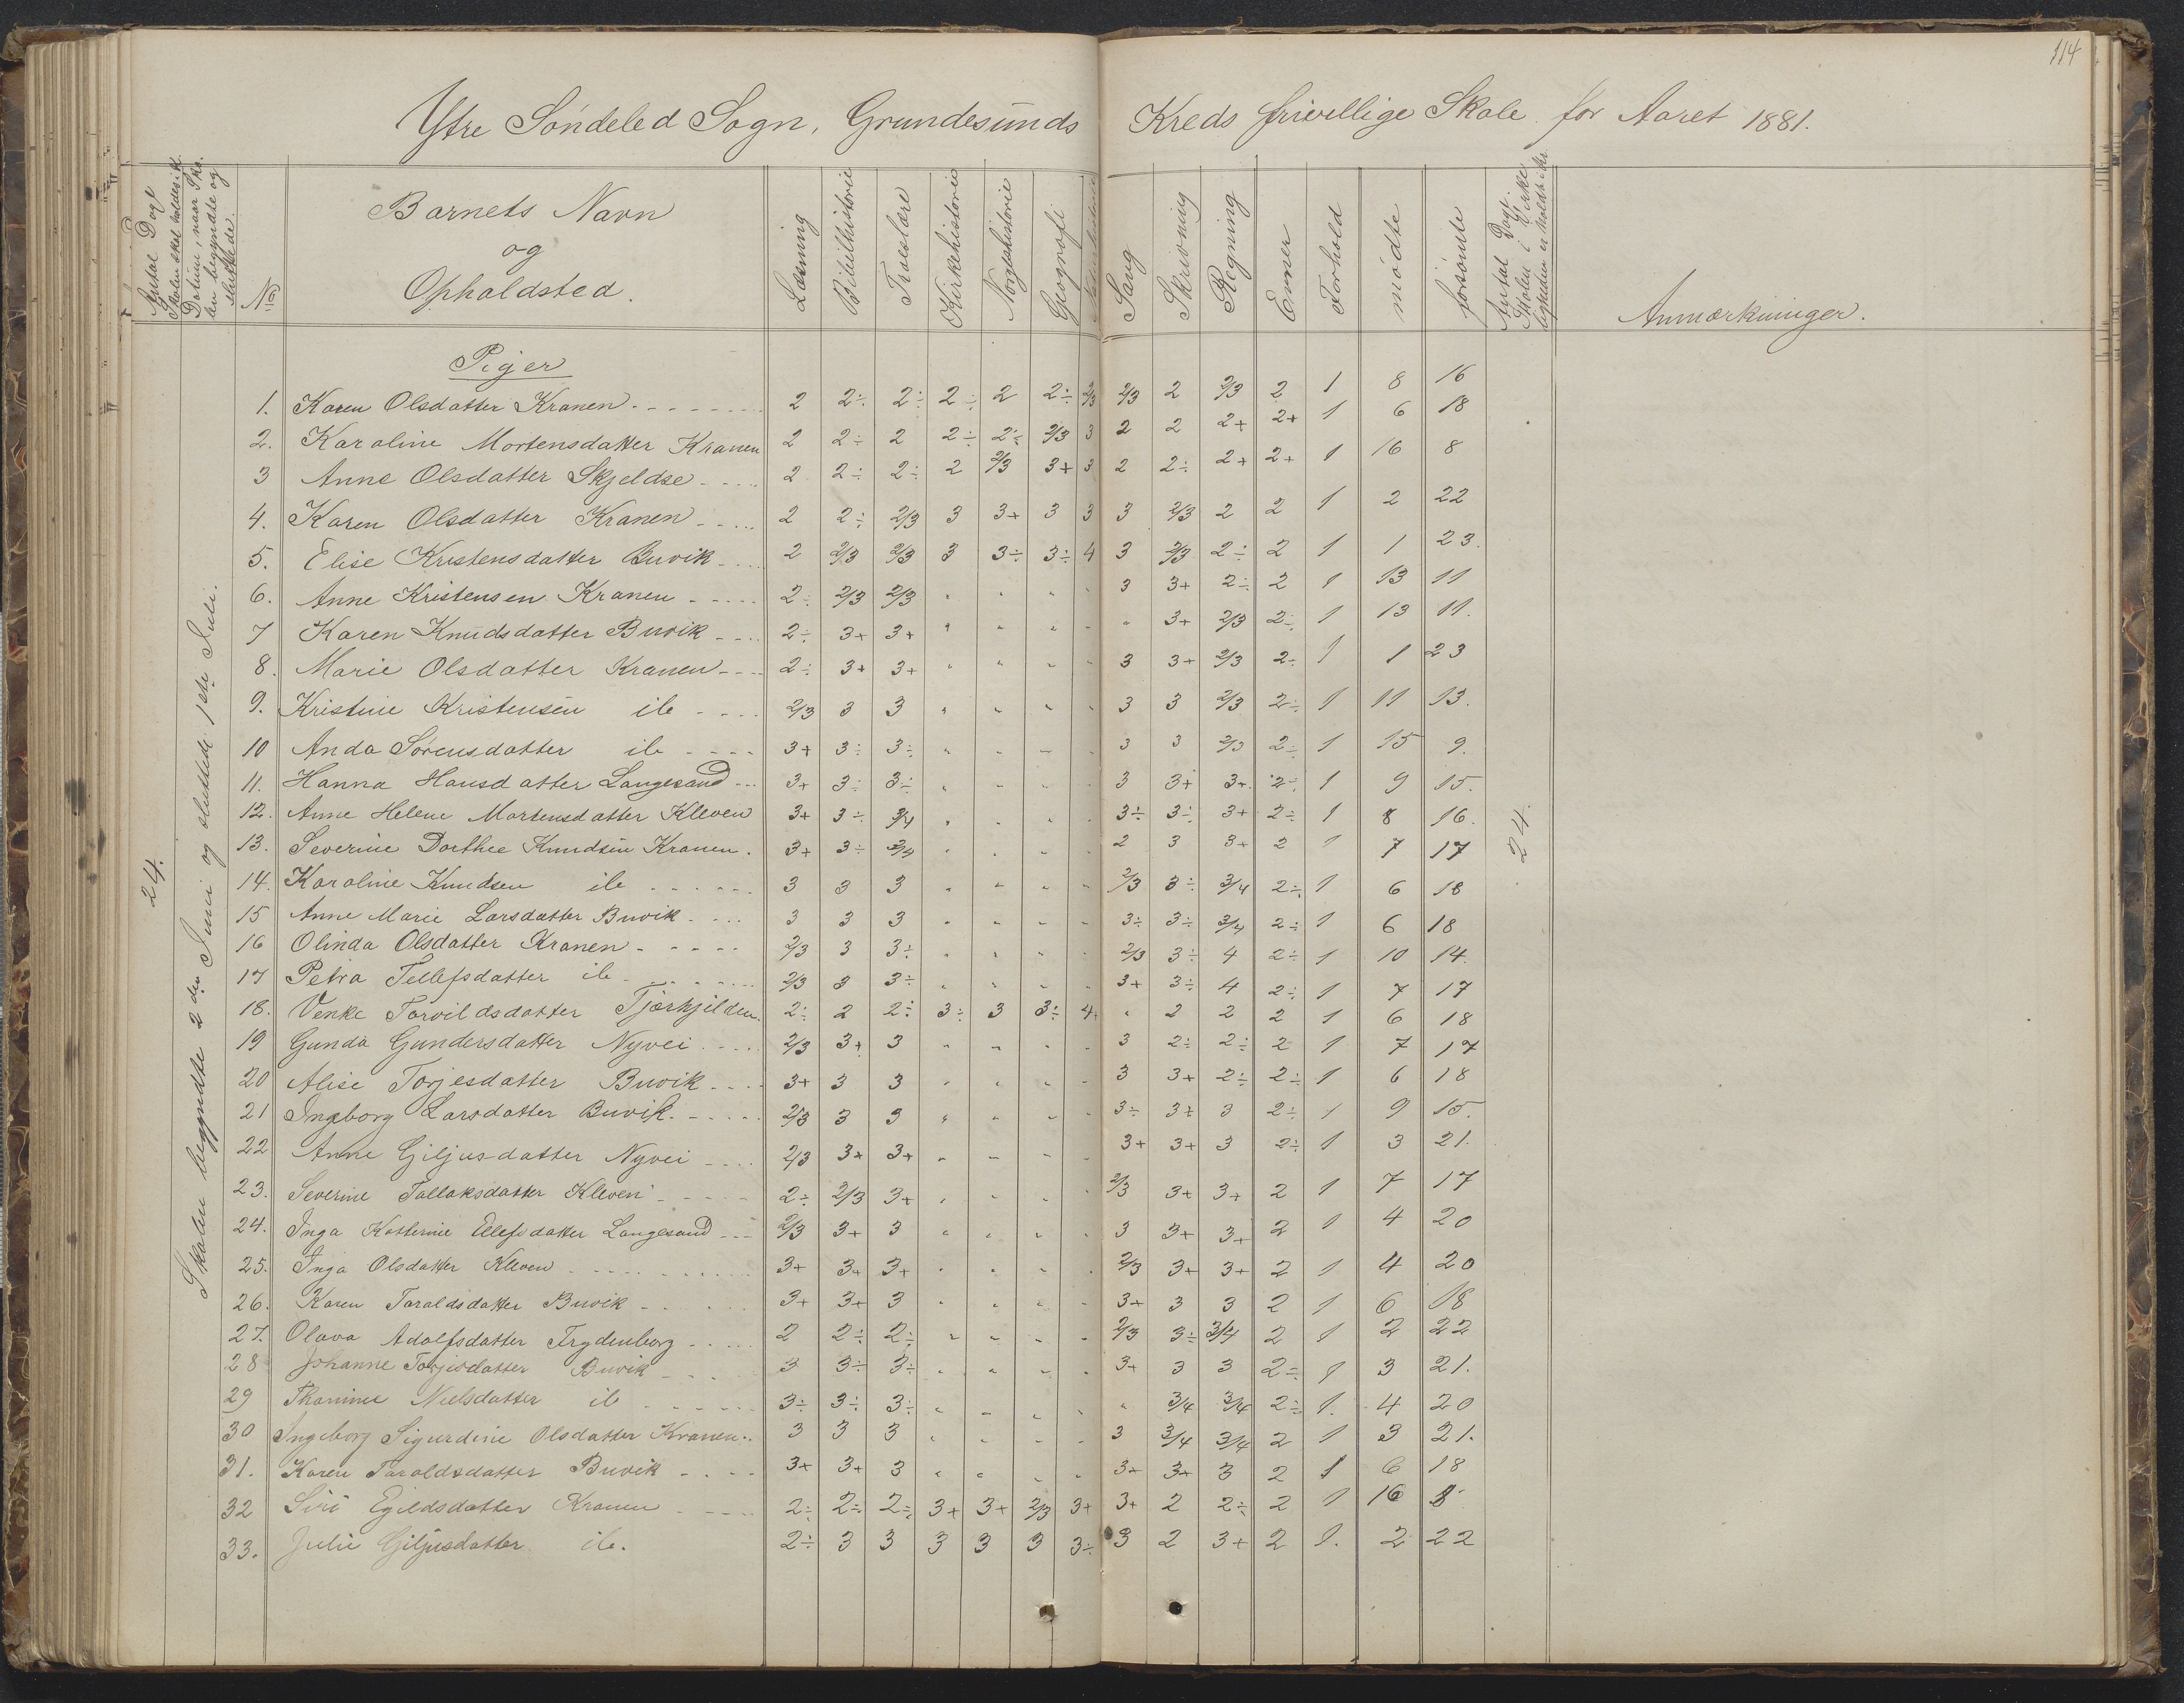 114
Ytre Söndeled Sogn, Grundesunds Kreds frivillige Skole for Aaret 1881.
Antal Dage Skolen skal holdes i K.
Datum, naar Skolen begyndte og sluttede.
No
Barnets Navn
og
Opholdsted.
Læsning
Bibelhistorie
Troeslære
Kirkehistorie
Norgeshistorie
Geografi
Sang
Skrivning
Regning
Evner
Forhold
mödte
forsömte
Antal Dage Skolen i Virkeligheden er holdt i Kr.
Anmærkninger.
24.
Skolen begyndte 2den Juni og sluttede 1ste Juli.
24.
Piger
1. Karen Olsdatter Kranen 2 2÷ 2÷ 2÷ 2 2÷ 2/3 2/3 2 2/3 2 1 8 16
2. Karoline Mortensdatter Kranen 2 2÷ 2 2÷ 2÷ 2/3 3 2 2 2+ 2+ 1 6 18
3 Anne Olsdatter Skjeldse 2 2÷ 2÷ 2 2/3 3+ 3 2 2÷ 2+ 2+ 1 16 8
4. Karen Olsdatter Kranen 2 2÷ 2/3 3 3+ 3 3 3 2/3 2 2 1 2 22
5. Elise Kristensdatter Buvik 2 2/3 2/3 3 3÷ 3÷ 4 3 2/3 2÷ 2 1 1 23.
6. Anne Kristensen Kranen 2÷ 2/3 2/3 " " " " 3 3+ 2÷ 2 1 13 11
7 Karen Knudsdatter Buvik 2÷ 3+ 3+ " " " " " 3+ 2/3 2÷ 1 13 11.
8. Marie Olsdatter Kranen 2÷ 3+ 3+ " " " " 3 3+ 2/3 2÷ 1 1 23
9. Kristine Kristensen ib 2/3 3 3 " " " " 3 3 2/3 2÷ 1 11 13.
10 Anda Sörensdatter ib 3+ 3÷ 3÷ " " " " 3 3 2/3 2÷ 1 15 9.
11. Hanna Hansdatter Langesand 3+ 3÷ 3÷ " " " " 3 3+ 3+ 2÷ 1 9 15.
12. Anne Helene Mortensdatter Kleven 3+ 3÷ 3/4 " " " " 3÷ 3÷ 3+ 2÷ 1 8 16.
13. Severine Dorthee Knudsen Kranen. 3+ 3÷ 3/4 " " " " 2 3 3+ 2 1 7 17
14. Karoline Knudsen ib 3 3 3 " " " " 2/3 3÷ 3/4 2÷ 1 6 18
15 Anne Marie Larsdatter Buvik 3 3 3 " " " " 3÷ 3÷ 3/4 2÷ 1 6 18
16 Olinda Olsdatter Kranen 2/3 3 3÷ " " " " 2/3 3÷ 4 2÷ 1 10 14.
17 Petra Tellefsdatter ib 2/3 3 3÷ " " " " 3+ 3÷ 4 2÷ 1 7 17
18. Venke Torvildsdatter Tjærkjilden. 2÷ 2 2÷ 3÷ 3 3÷ 4+ " 2 2 2 1 6 18
19 Gunda Gundersdatter Nyvei 2/3 3+ 3 " " " " 3 2÷ 2÷ 2 1 7 17
20 Alise Torjesdatter Buvik 3+ 3 3 " " " " 3 3+ 2÷ 2÷ 1 6 18
21 Ingeborg Larsdatter Buvik 2/3 3 3 " " " " 3÷ 3+ 3 2÷ 1 9 15.
22 Anne Giljusdatter Nyvei 2/3 3+ 3+ " " " " 3+ 3+ 3 2÷ 1 3 21.
23. Severine Tallaksdatter Kleven 2÷ 2/3 3+ " " " " 2/3 3+ 3+ 2 1 7 17
24. Inga Katterine Ellefsdatter Langesand 2/3 3+ 3 " " " " 3 3+ 3+ 2 1 4 20
25. Inga Olsdatter Kleven 3+ 3+ 3+ " " " " 2/3 3+ 3+ 2 1 4 20
26. Karen Taraldsdatter Buvik 3+ 3+ 3 " " " " 3+ 3 3 2 1 6 18
27. Olava Adolfsdatter Frydenborg 2 2÷ 2÷ " " " " 2/3 3÷ 3/4 2 1 2 22
28 Johanne Torjesdatter Buvik 3 3÷ 3÷ " " " " 3+ 3 3 2÷ 1 3 21.
29 Thamine Nielsdatter ib 3÷ 3÷ 3÷ " " " " " 3/4 3/4 2÷ 1. 4 20
30 Ingeborg Sigurdine Olsdatter Kranen 3 3 3 " " " " 3 3/4 3/4 2 1 3 21.
31. Karen Taraldsdatter Buvik 3+ 3+ 3 " " " " 3+ 3+ 3 2 1 6 18
32 Siri Egildsdatter Kranen 2÷ 2÷ 2÷ 3+ 3+ 2/3 3+ 3+ 2 2÷ 2 1 16 8
33. Julie Giljusdatter ib. 2÷ 3 3 3 3 3 3÷ 3 2 3+ 2 1. 2 22